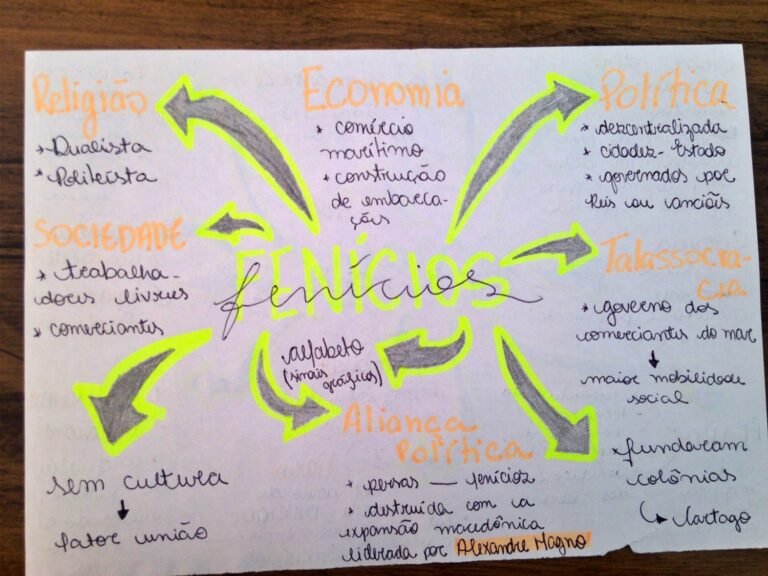 Religião
* Dualista
* Politeísta
Economia
* comércio
marítimo
* construção
de embarca-
ções
Política
* dezcentralizada
* cidadez-Estado
* governados por
Reis ou anciãs
SOCIEDADE
* trabalha-
dores livres
* comerciantes
FENÍCIOS
fenícios
Talassocra-
cia
* governo dos
comerciantes do mar
maior mobilidade
social
alfabeto
(sinais
gráficos)
sem cultura
fator união
Aliança
Política
* persas — fenícioz
* destruída com a
expansão macedônica
liderada por Alexandre Magno
* fundaram
colônias
Cartago